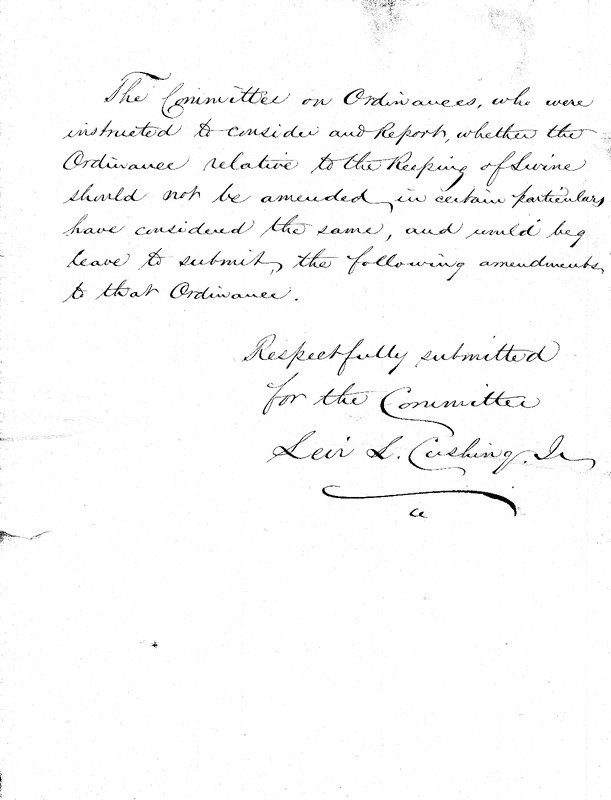 The Committee on Ordinances, who were
instructed to consider and Report, whether the
Ordinance relative to the Keeping of Swine
should not be amended, in certain particulars
have considered the same, and would beg
leave to submit, the following amendments
to that Ordinance.
Respectfully submitted
for the Committee
Levi L. Cushing. Jr